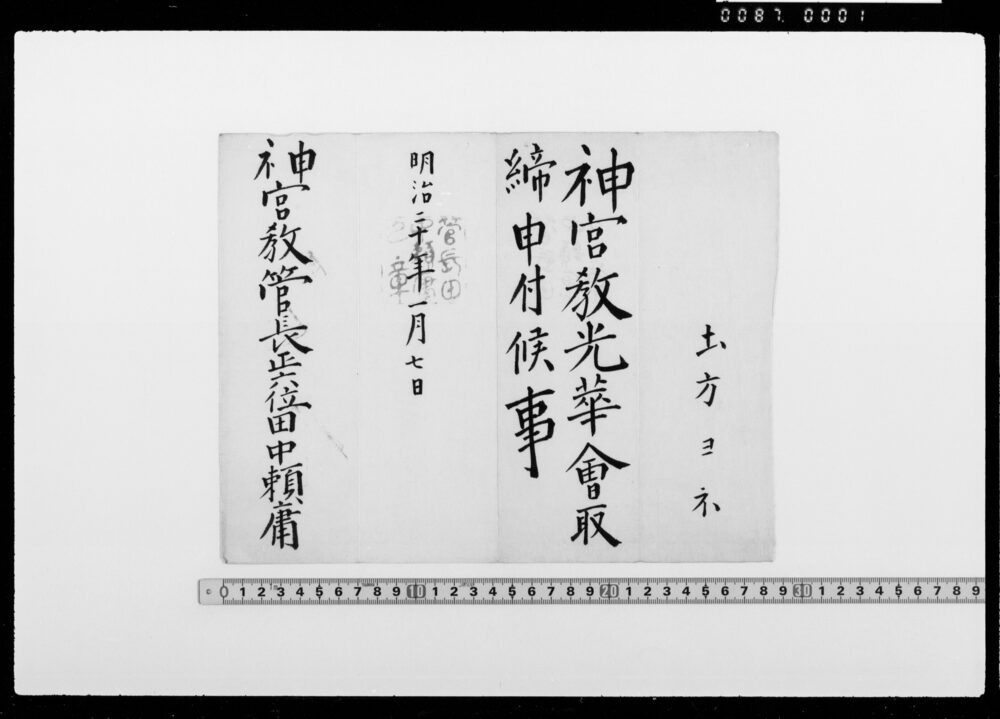 0087. 0001
圡方ヨネ
神宮教光華會取
締申付候事
明治二十年一月七日
神宮教管長正六位田中頼庸
0 1 2 3 4 5 6 7 8 9 10 1 2 3 4 5 6 7 8 9 20 1 2 3 4 5 6 7 8 9 30 1 2 3 4 5 6 7 8 9